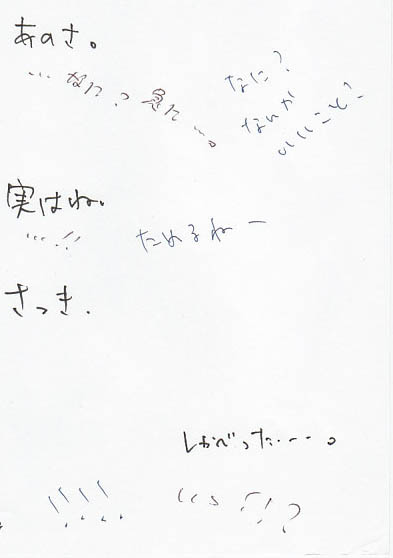 あのさ。
…なに？急に…。
なに？
なんか
いいこと？
実はね。
…!!
ためるねー
さっき.
しゃべった…。
!!!!
……